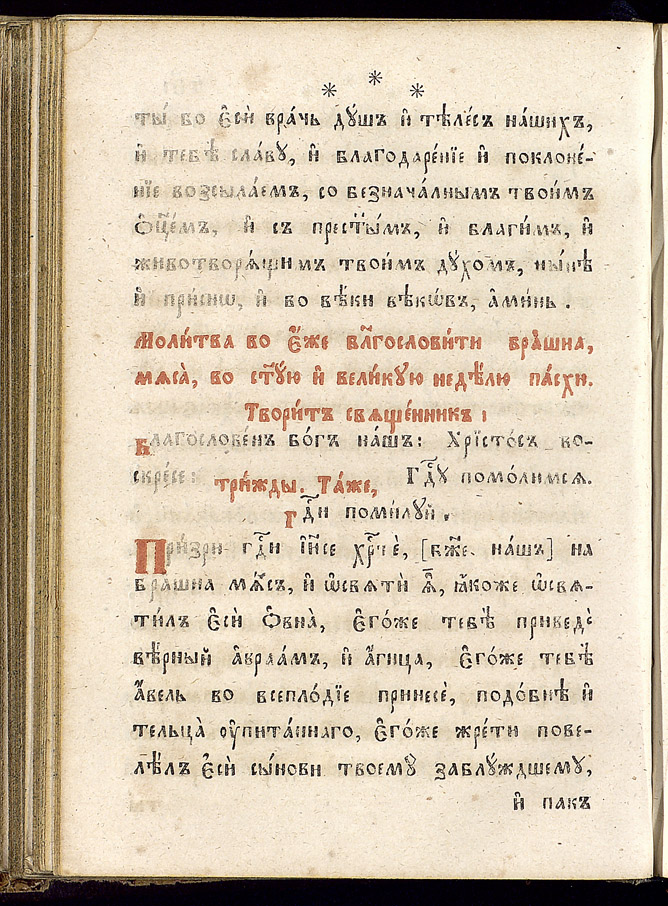 * * *
ты̀ во є҆сѝ вра́чь дꙋ́шъ и҆ тѣле́съ на́шихъ,
и҆ тебѣ̀ сла́вꙋ, и҆ благодаре́нїе и҆ поклоне́-
нїе возсыла́емъ, со безнача́лнымъ твои́мъ
ѻ҆ц҃е́мъ, и҆ съ прест҃ы́мъ, и҆ благи́мъ, и҆
животворѧ́щимъ твои́мъ дꙋ́хомъ, ны́нѣ
и҆ при́снѡ, и҆ во вѣ́ки вѣкѡ́въ, а҆ми́нь.
Моли́тва во є҆́же бл҃гослови́ти бра̑шна,
мѧса̀, во ст҃ꙋ́ю и҆ вели́кꙋю недѣ́лю па́схи.
Твори́тъ свѧще́нникъ:
Благослове́нъ бо́гъ на́шъ: Хрїсто́съ во-
скре́се: три́жды. Та́же, Гдⷭ҇ꙋ помо́лимсѧ.
Гдⷭ҇и поми́лꙋй.
При́зри гдⷭ҇и і҆и҃се хрⷭ҇тѐ, [бж҃е на́шъ] на
бра̑шна мѧ́съ, и҆ ѡ҆свѧтѝ ѧ҆̀, ꙗ҆́коже ѡ҆свѧ-
ти́лъ є҆сѝ ѻ҆вна̀, є҆го́же тебѣ̀ приведѐ
вѣ́рный а҆враа́мъ, и҆ а҆́гнца, є҆го́же тебѣ̀
а҆́вель во всепло́дїе принесѐ, подо́бнѣ и҆
тельца̀ ᲂу҆пита́ннаго, є҆го́же жре́ти пове-
лѣ́лъ є҆сѝ сы́нови твоемꙋ̀ заблꙋ́ждшемꙋ,
и҆ пакъ